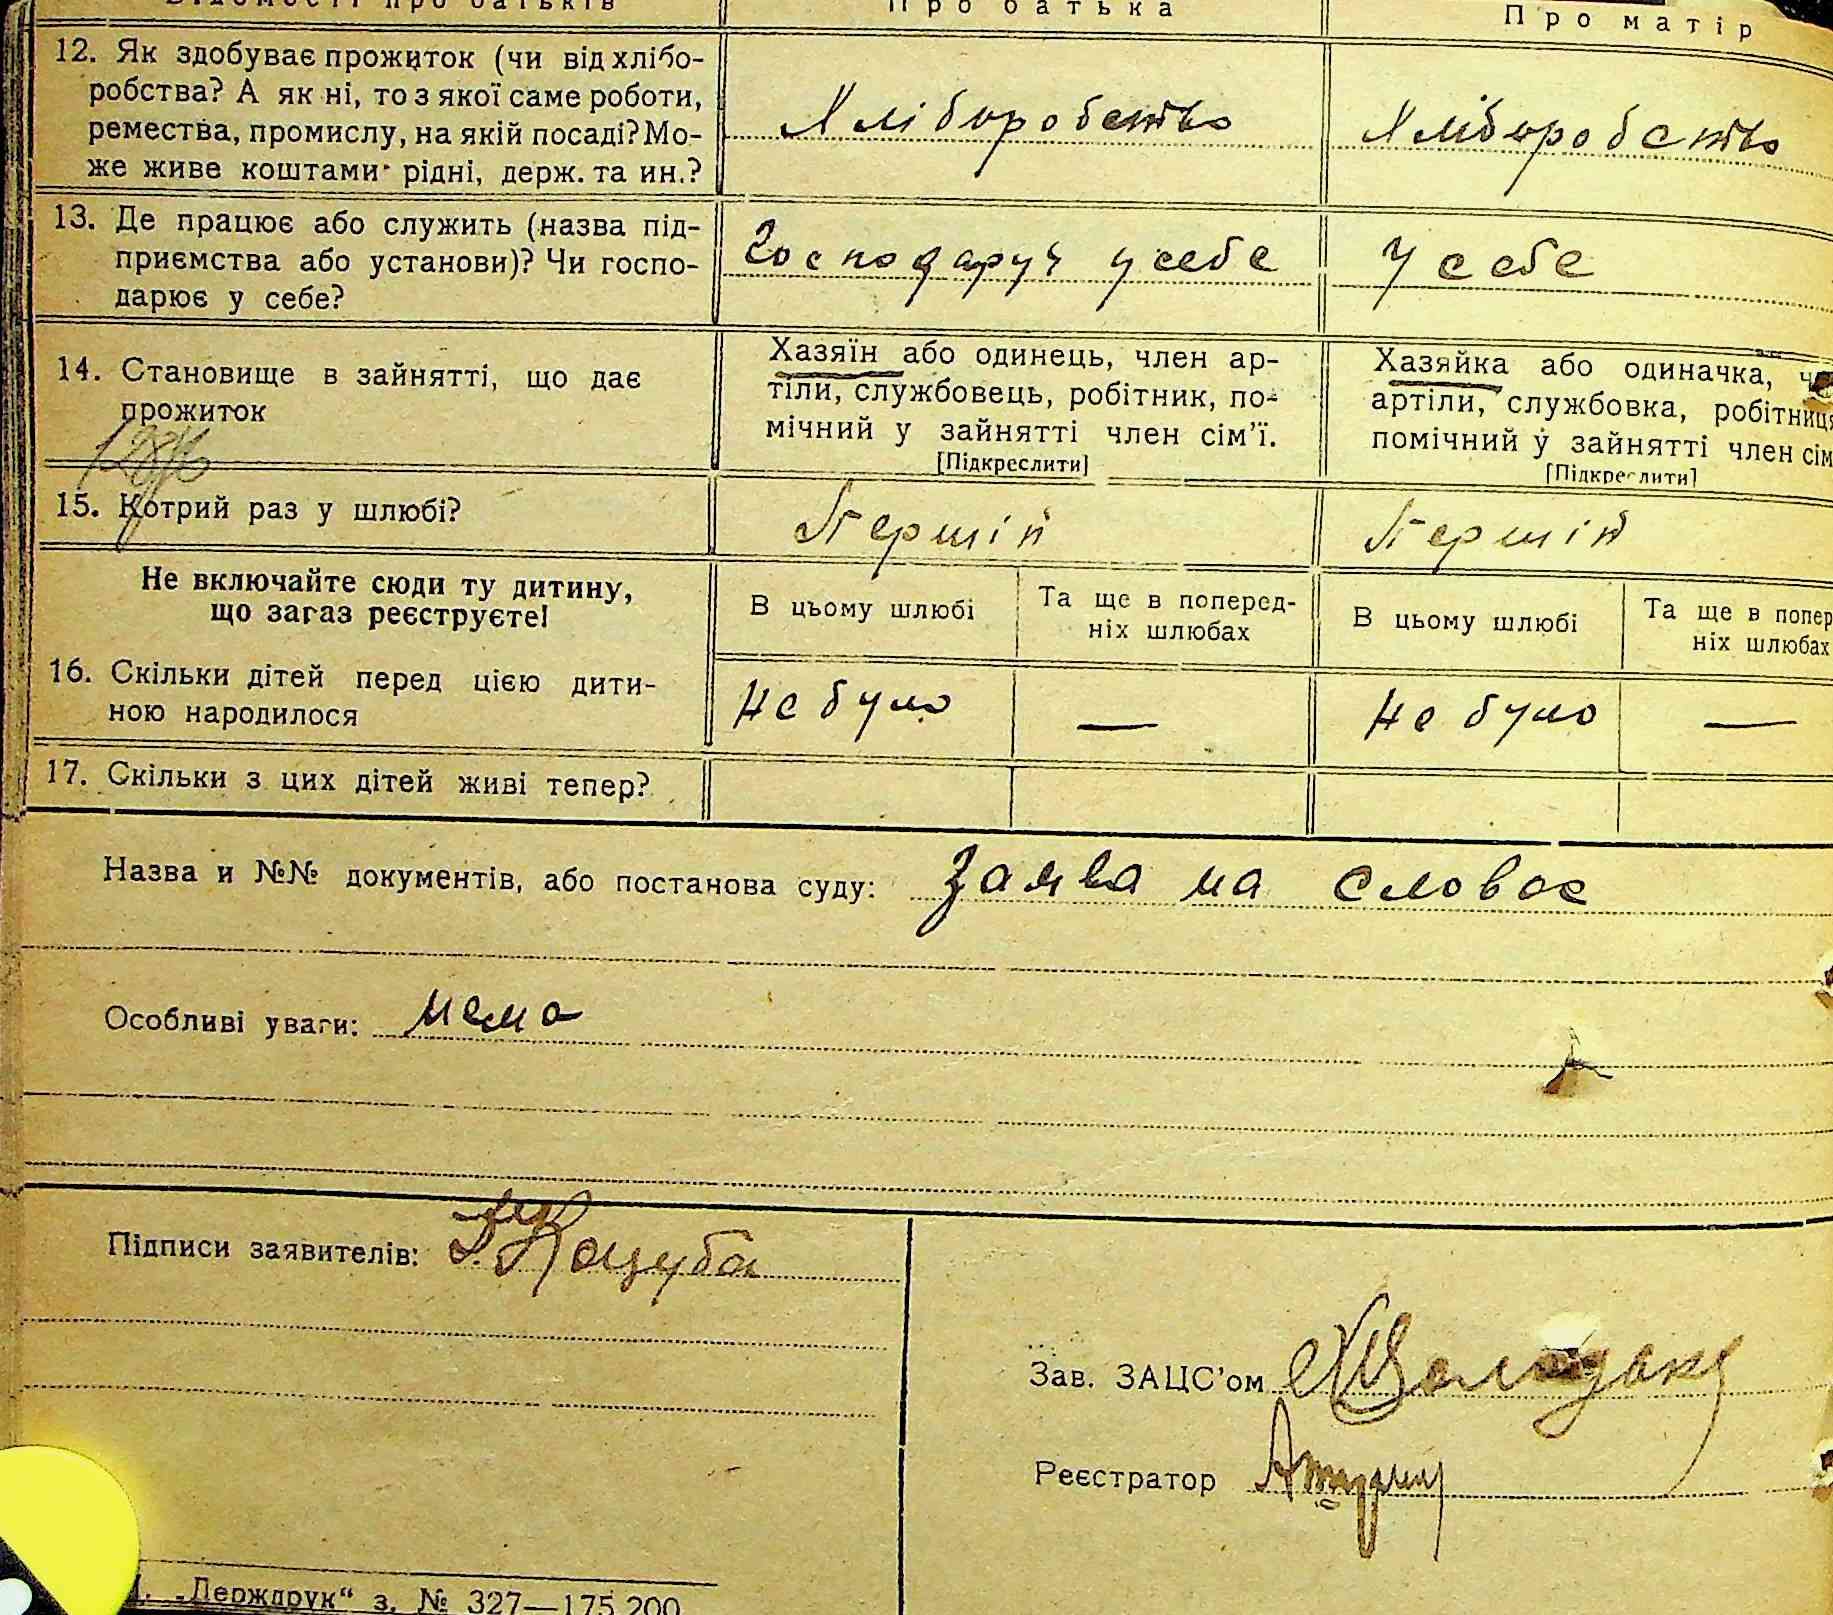 Відомості про батьків Про батька Про матір
12. Як здобуває прожиток (чи від хлібо-
робства? А як ні, то з якої саме роботи,
ремества, промислу, на якій посаді? Мо-
же живе коштами рідні, держ. та ин.?
Хліборобство Хліборобство
13. Де працює або служить (назва під-
приємства або установи)? Чи госпо-
дарює у себе?
Господарує у себе У себе
14. Становище в зайнятті, що дає
прожиток
Хазяїн або одинець, член ар-
тіли, службовець, робітник, по-
мічний у зайнятті член сім'ї.
[Підкреслити]
Хазяйка або одиначка,
артіли, службовка, робітниця
помічний у зайнятті член сім
[Підкреслити]
15. Котрий раз у шлюбі?
Першій Першій
Не включайте сюди ту дитину,
що зараз реєструєте!
В цьому шлюбі Та ще в поперед-
ніх шлюбах
В цьому шлюбі Та ще в попер
ніх шлюбах
16. Скільки дітей перед цією дити-
ною народилося
Не було — Не було —
17. Скільки з цих дітей живі тепер?
Назва и №№ документів, або постанова суду: Заява на словах
Особливі уваги: нема
Підписи заявителів: Коцуба
Зав. ЗАЦС'ом
Реєстратор
„Держдрук“ з. № 327—175.200